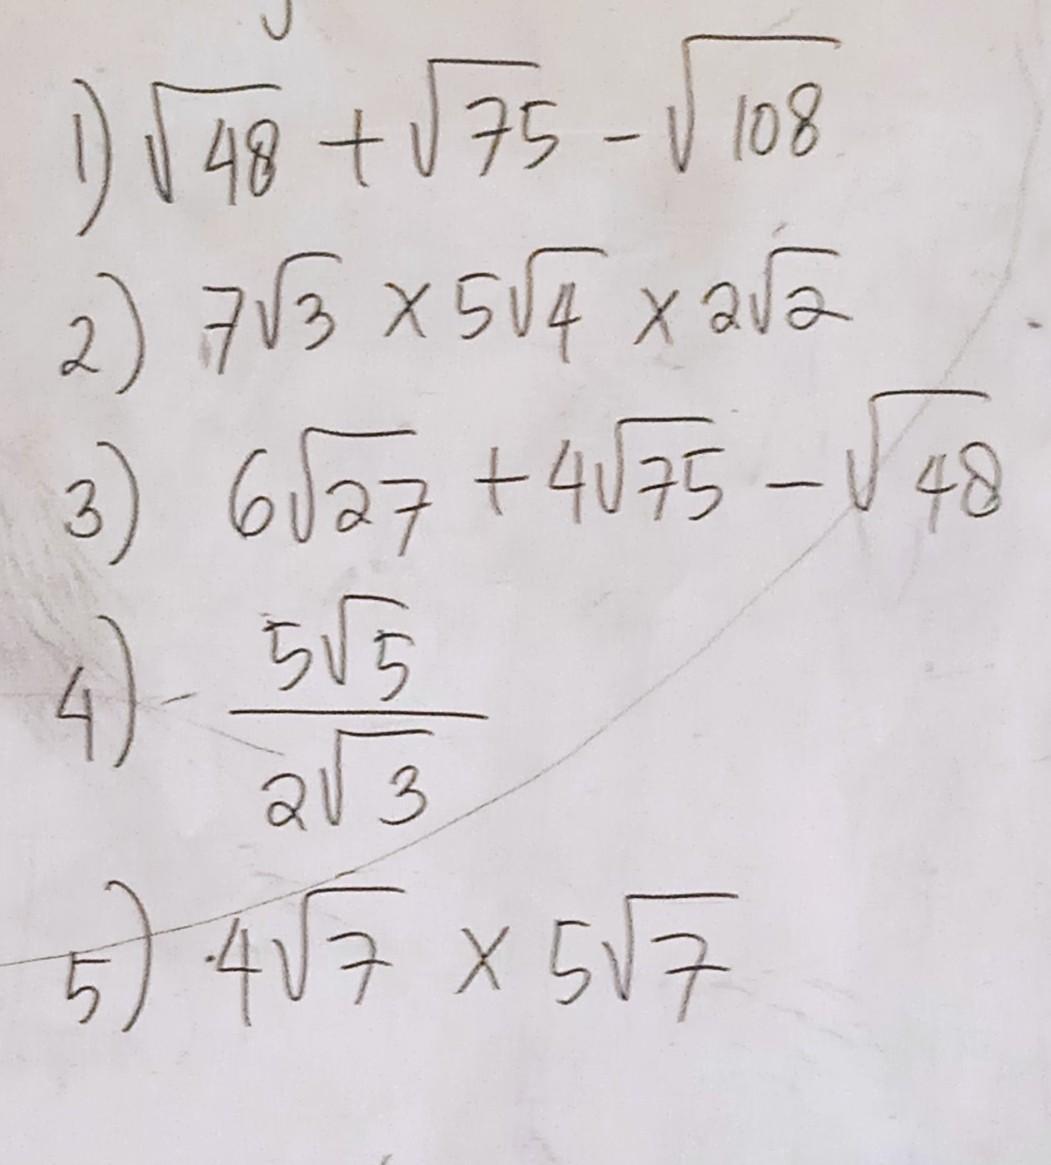 1) √48 + √75 - √108
2) 7√3 × 5√4 × 2√2
3) 6√27 + 4√75 - √48
4) 5√5
2√3
5) 4√7 × 5√7